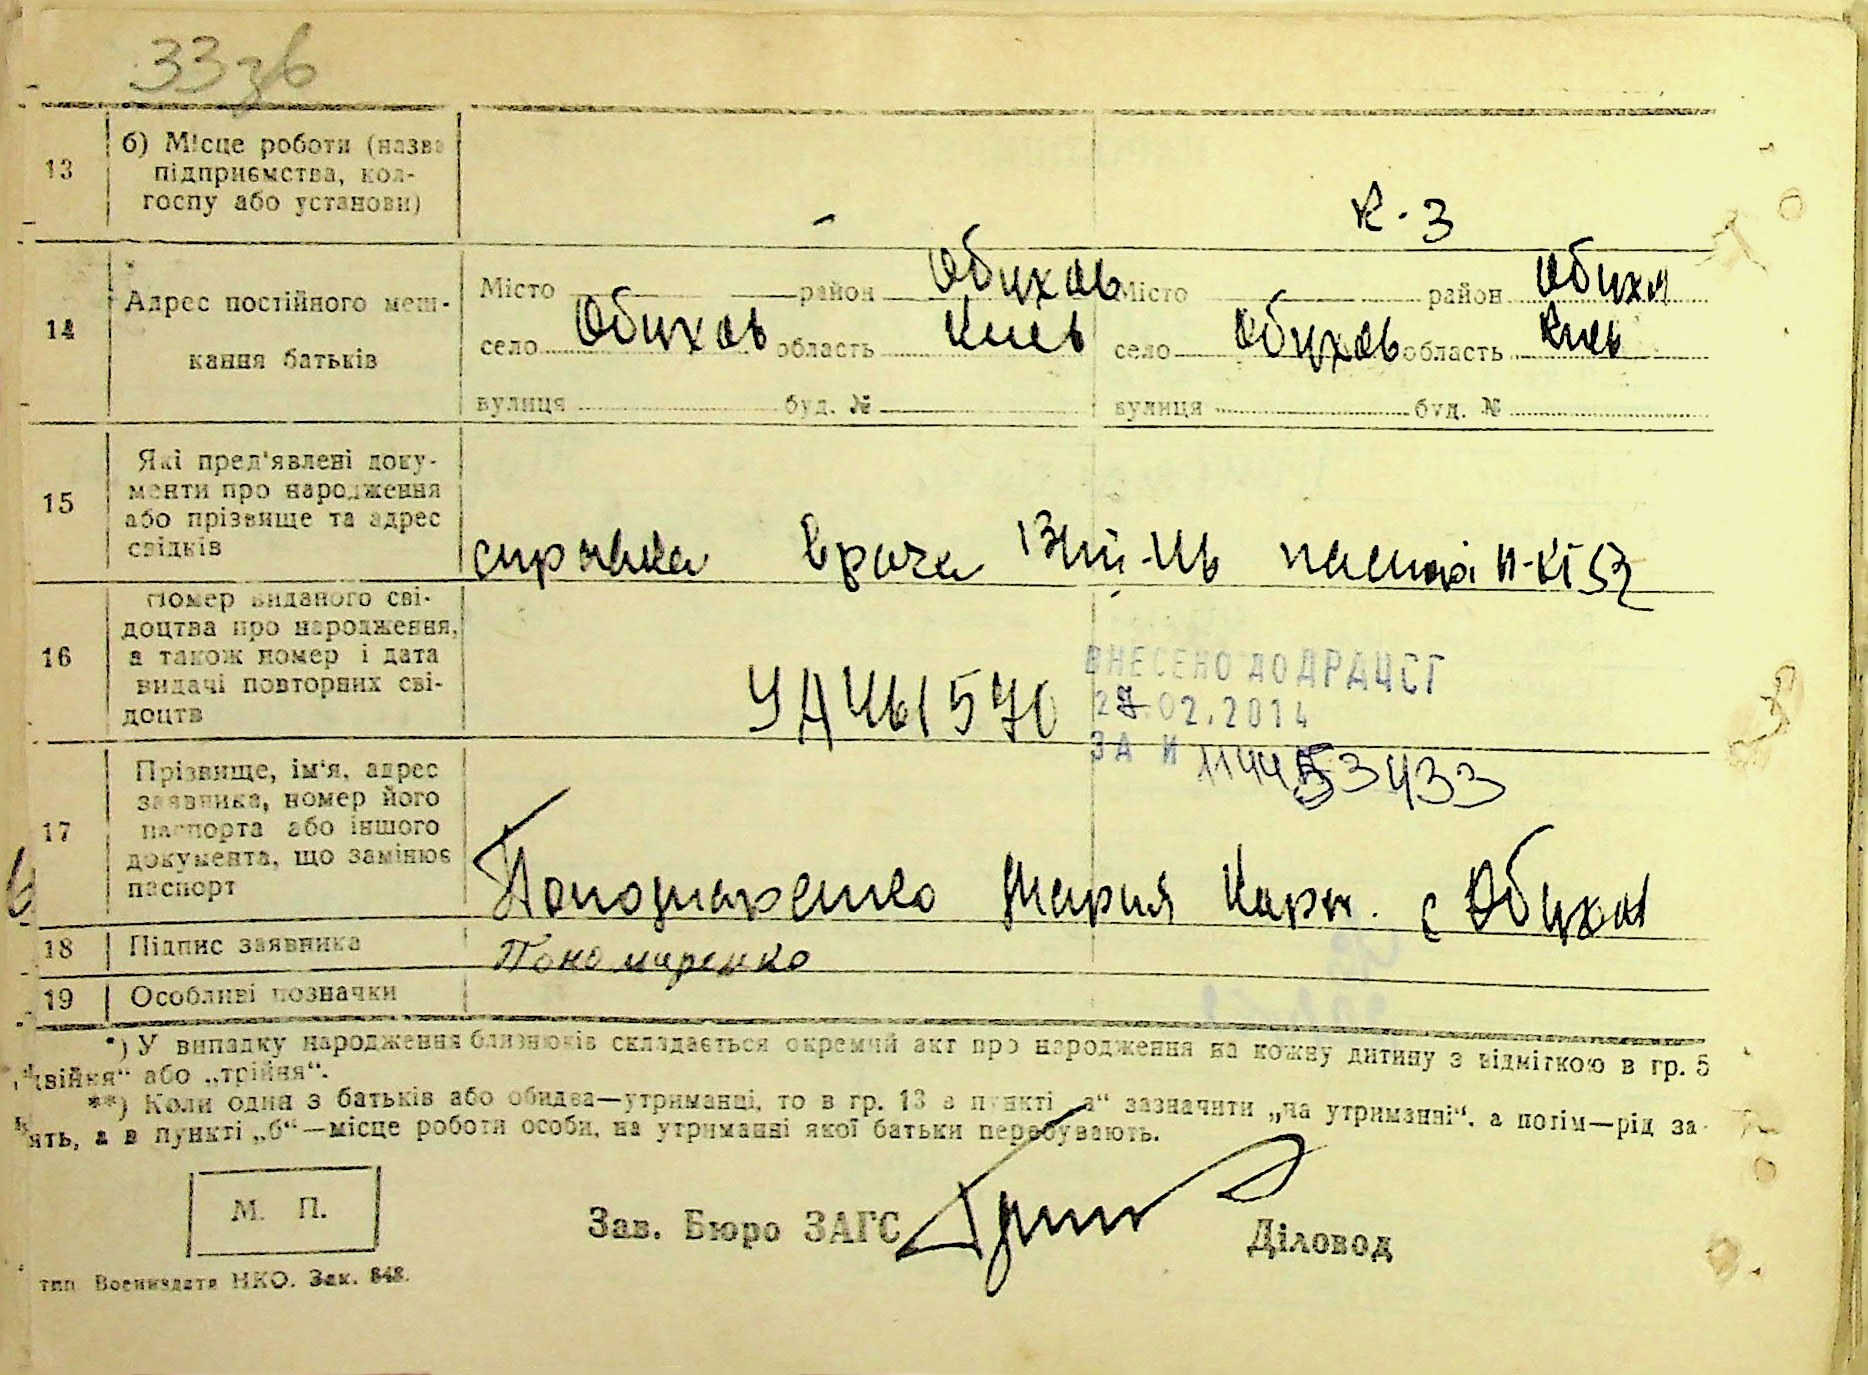 33зв
13
б) Місце роботи (назва
підприємства, кол-
госпу або установи)
-
К-3
14
Адрес постійного меш-
кання батьків
Місто район Обухов Місто район Обухов
село Обухов область Киев село Обухов область Киев
вулиця буд. № вулиця буд. №
15
Які пред'явлені доку-
менти про народження
або прізвище та адрес
свідків
справка врача
16
Номер виданого сві-
доцтва про народження,
а також номер і дата
видачі повторних сві-
доцтв
УА461570
ВНЕСЕНО ДО ДРАЦСГ
27.02.2014
ЗА №
17
Прізвище, ім'я, адрес
заявника, номер його
паспорта або іншого
документа, що замінює
паспорт
Пономаренко Мария Карп. с Обухов
18
Підпис заявника
Пономаренко
19
Особливі позначки
*) У випадку народження близнюків складається окремий акт про народження на кожну дитину з відміткою в гр. 5
„двійня“ або „трійня“.
**) Коли один з батьків або обидва—утриманці, то в гр. 13 в пункті „а“ зазначити „на утриманні“, а потім—рід за-
нять, а в пункті „б“—місце роботи особи, на утриманні якої батьки перебувають.
М. П.
Зав. Бюро ЗАГС
Діловод
тип Воениздата НКО. Зак. 848.